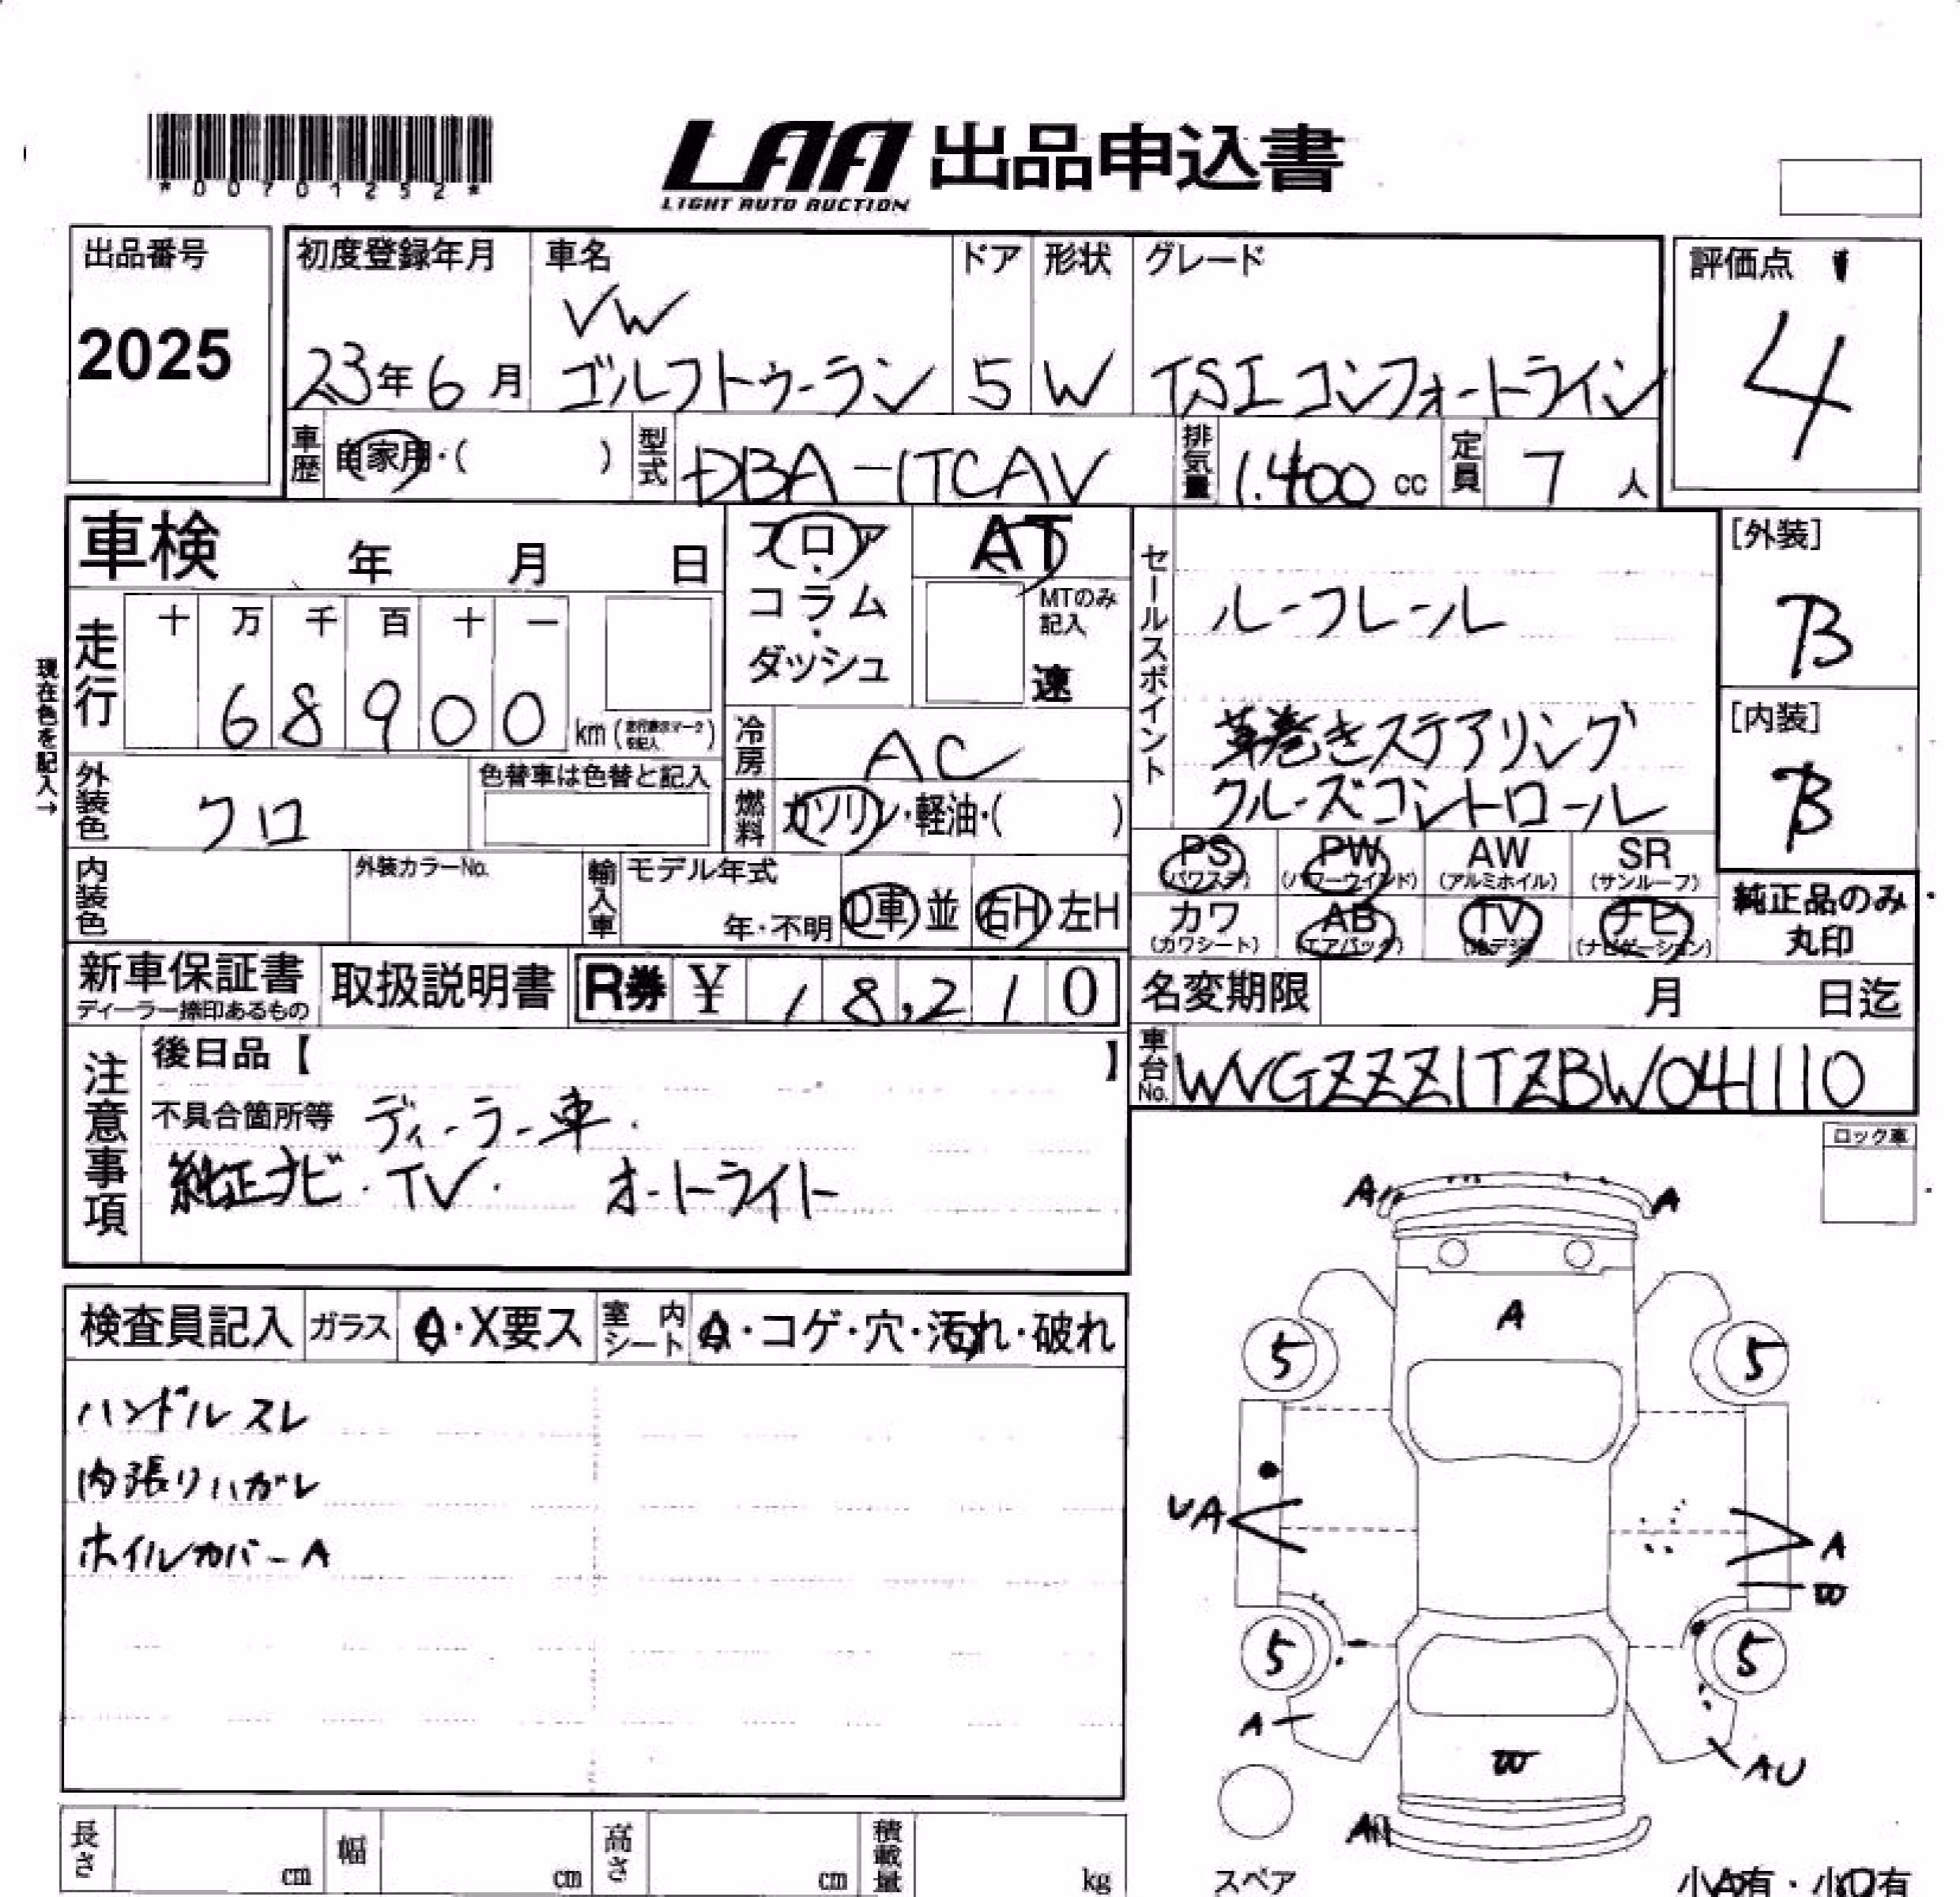 *00701252*
LAA 出品申込書
LIGHT AUTO AUCTION
出品番号
2025
初度登録年月
23年6月
車名
VW
ゴルフトゥーラン
ドア
5
形状
W
グレード
TSI コンフォートライン
評価点
4
車歴
自家用・( )
型式
DBA-1TCAV
排気量
1.400 cc
定員
7 人
車検 年 月 日
フロア・コラム・ダッシュ
AT
MTのみ記入
速
セールスポイント
ルーフレール
革巻きステアリング
クルーズコントロール
[外装]
B
[内装]
B
現在色を記入→
走行
十 万 千 百 十 一
68900
km (走行表示マークを記入)
冷房
AC
外装色
クロ
色替車は色替と記入
燃料
ガソリン・軽油・( )
内装色
外装カラーNo.
輸入車
モデル年式
年・不明
D車 並
右H 左H
PS
(パワステ)
PW
(パワーウインド)
AW
(アルミホイル)
SR
(サンルーフ)
カワ
(カワシート)
AB
(エアバック)
TV
(地デジ)
ナビ
(ナビゲーション)
純正品のみ
丸印
新車保証書
ディーラー捺印あるもの
取扱説明書
R券 ¥ 18,210
名変期限 月 日迄
車台No.
WVGZZZ1TZBW041110
注意事項
後日品【 】
不具合箇所等 ディーラー車.
純正ナビ・TV. オートライト
ロック車
検査員記入
ガラス
A・X要ス
室内シート
A・コゲ・穴・汚れ・破れ
ハンドルスレ
内張りハガレ
ホイルカバーA
A A
A
5 5
UA
A
W
5 5
A
AU
W
A
スペア
小A有・小口有
長さ cm
幅 cm
高さ cm
積載量 kg